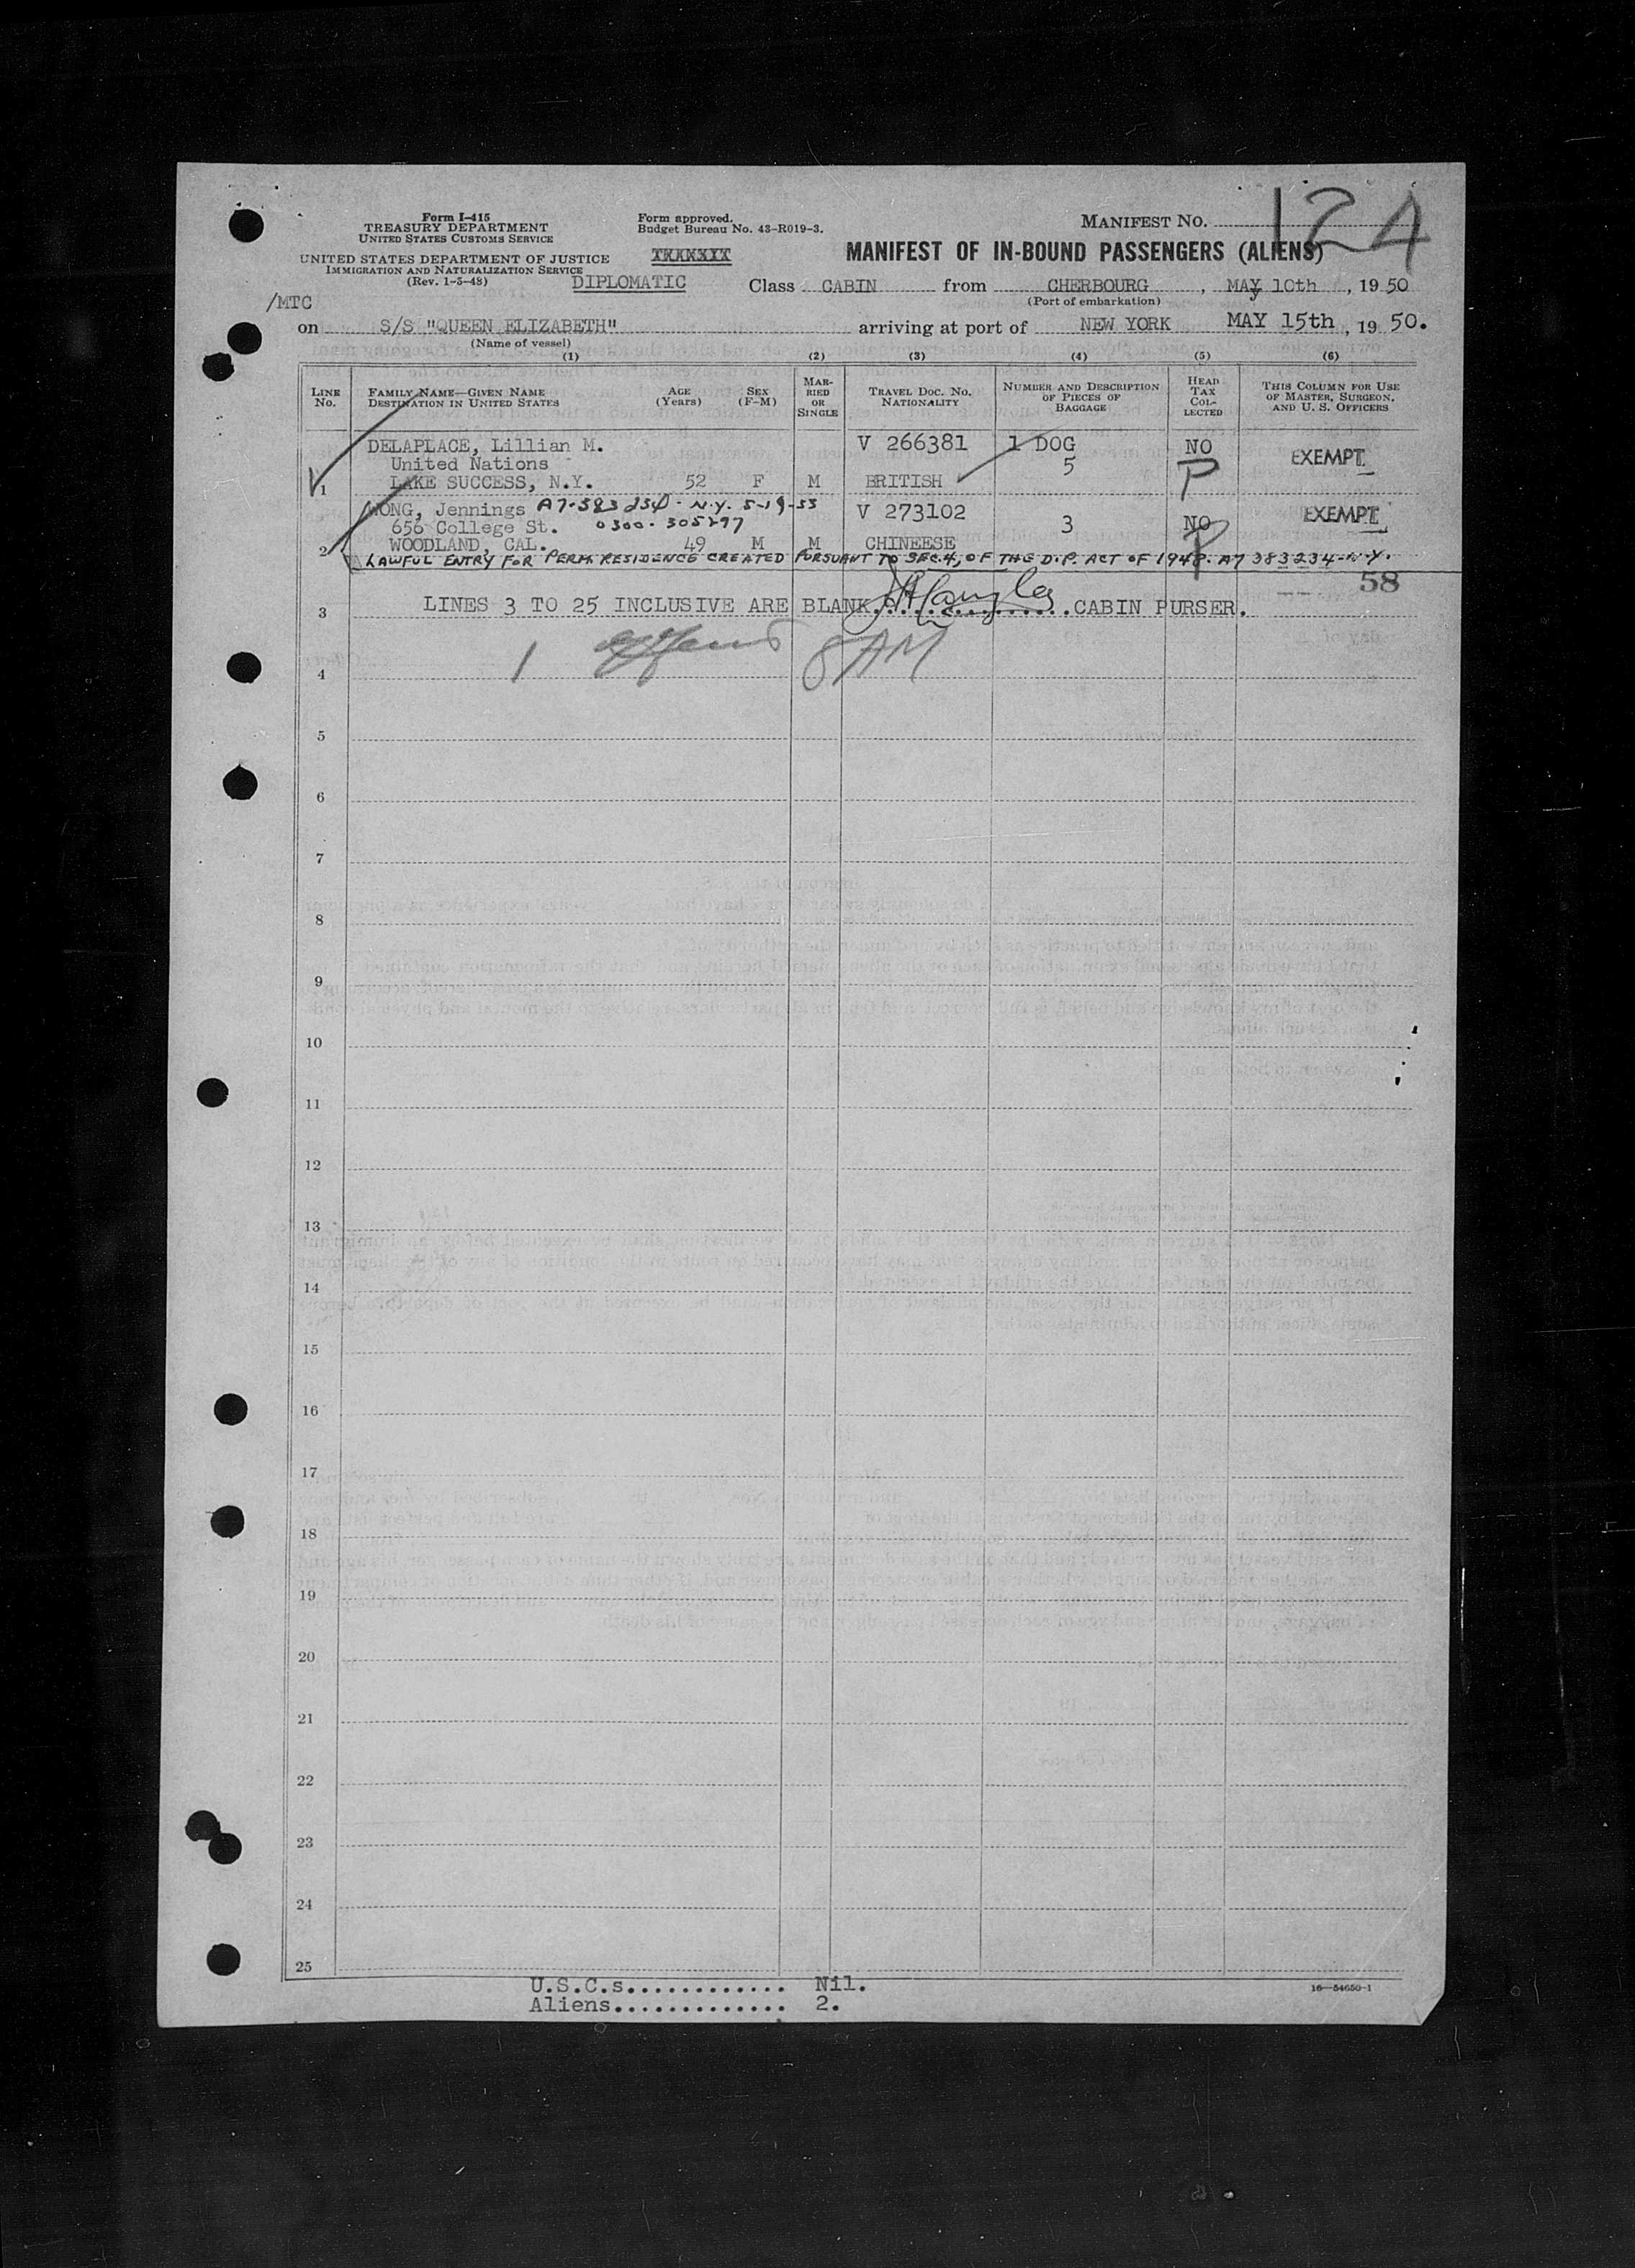 Form I-415
TREASURY DEPARTMENT
UNITED STATES CUSTOMS SERVICE
UNITED STATES DEPARTMENT OF JUSTICE
IMMIGRATION AND NATURALIZATION SERVICE
(Rev. 1-3-48)
Form approved.
Budget Bureau No. 43-R019-3.
MANIFEST No. 124
MANIFEST OF IN-BOUND PASSENGERS (ALIENS)
DIPLOMATIC Class CABIN from CHERBOURG, MAY 10th, 1950
(Port of embarkation)
/MTC
on S/S "QUEEN ELIZABETH" arriving at port of NEW YORK MAY 15th, 1950.
(Name of vessel)
(1) (2) (3) (4) (5) (6)
LINE No.
FAMILY NAME—GIVEN NAME
DESTINATION IN UNITED STATES
AGE (Years)
SEX (F-M)
MARRIED OR SINGLE
TRAVEL DOC. NO. NATIONALITY
NUMBER AND DESCRIPTION OF PIECES OF BAGGAGE
HEAD TAX COLLECTED
THIS COLUMN FOR USE OF MASTER, SURGEON, AND U. S. OFFICERS
DELAPLACE, Lillian M. V 266381 1 DOG NO
United Nations 5 EXEMPT
1 LAKE SUCCESS, N.Y. 52 F M BRITISH P
WONG, Jennings A7-383 234 - N.Y. 5-19-53 V 273102 EXEMPT
656 College St. 0300-305297 3 NO
2 WOODLAND, CAL. 49 M M CHINEESE P
LAWFUL ENTRY FOR PERM. RESIDENCE CREATED PURSUANT TO SEC. 4, OF THE D.P. ACT OF 1948. A7 383234-N.Y.
58
3 LINES 3 TO 25 INCLUSIVE ARE BLANK CABIN PURSER.
1 8 AM
4
5
6
7
8
9
10
11
12
13
14
15
16
17
18
19
20
21
22
23
24
25
U.S.C.s............. Nil.
Aliens.............. 2.
16—54650-1